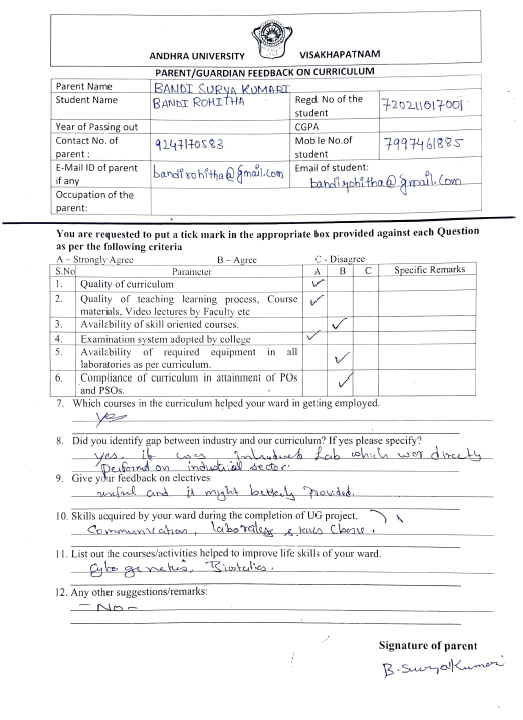 ANDHRA UNIVERSITY VISAKHAPATNAM
PARENT/GUARDIAN FEEDBACK ON CURRICULUM
Parent Name BANDI SURYA KUMARI
Student Name BANDI ROHITHA Regd. No of the student 720211817001
Year of Passing out CGPA
Contact No. of parent : 9247170583 Mobile No.of student 7997461885
E-Mail ID of parent if any bandirohitha@gmail.com Email of student: bandirohitha@gmail.com
Occupation of the parent:
You are requested to put a tick mark in the appropriate box provided against each Question
as per the following criteria
A – Strongly Agree B – Agree C - Disagree
S.No Parameter A B C Specific Remarks
1. Quality of curriculum ✓
2. Quality of teaching learning process, Course
materials, Video lectures by Faculty etc ✓
3. Availability of skill oriented courses. ✓
4. Examination system adopted by college ✓
5. Availability of required equipment in all
laboratories as per curriculum. ✓
6. Compliance of curriculum in attainment of POs
and PSOs. ✓
7. Which courses in the curriculum helped your ward in getting employed.
yes
8. Did you identify gap between industry and our curriculum? If yes please specify?
yes, if Lab which was directly
Performed on industrial sector.
9. Give your feedback on electives
useful and it might be Provided.
10. Skills acquired by your ward during the completion of UG project.
Communication, skills
11. List out the courses/activities helped to improve life skills of your ward.
12. Any other suggestions/remarks:
- No -
Signature of parent
B. SuryaKumari